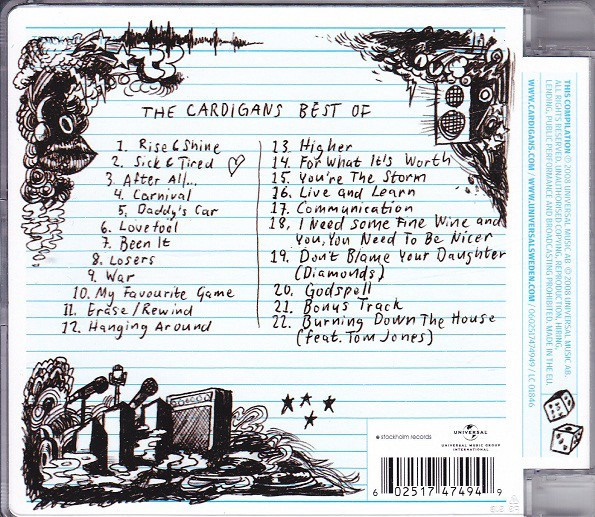 THE CARDIGANS BEST OF
1. Rise & Shine
2. Sick & Tired
3. After All...
4. Carnival
5. Daddy's Car
6. Lovefool
7. Been It
8. Losers
9. War
10. My Favourite Game
11. Erase/Rewind
12. Hanging Around
13. Higher
14. For What It's Worth
15. You're The Storm
16. Live and Learn
17. Communication
18. I Need Some Fine Wine and
You, You Need To Be Nicer
19. Don't Blame Your Daughter
(Diamonds)
20. Godspell
21. Bonus Track
22. Burning Down The House
(feat. Tom Jones)
℗ stockholm records
UNIVERSAL
UNIVERSAL MUSIC GROUP
INTERNATIONAL
6 02517 47494 9
THIS COMPILATION ℗ 2008 UNIVERSAL MUSIC AB. © 2008 UNIVERSAL MUSIC AB.
ALL RIGHTS RESERVED. UNAUTHORISED COPYING, REPRODUCTION, HIRING,
LENDING, PUBLIC PERFORMANCE AND BROADCASTING PROHIBITED. MADE IN THE EU.
WWW.CARDIGANS.COM / WWW.UNIVERSALSWEDEN.COM / 0602517474949 / LC 01846